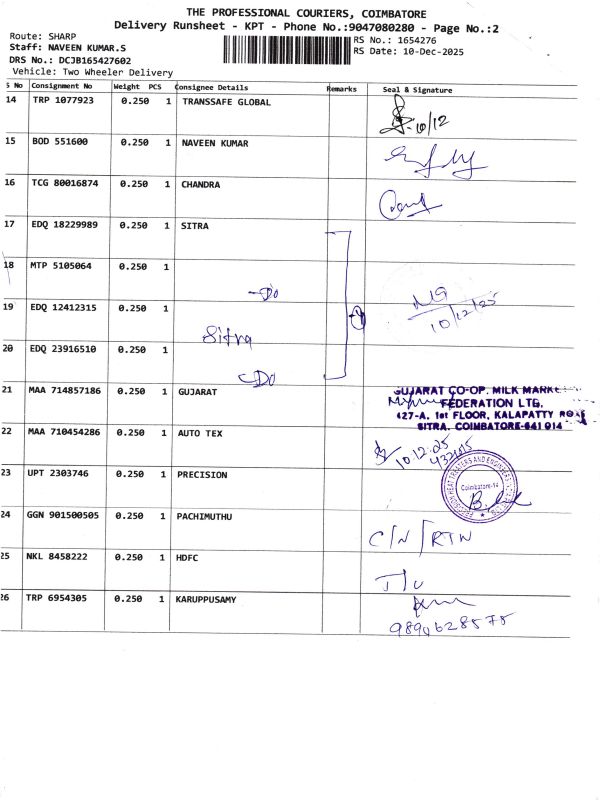 THE PROFESSIONAL COURIERS, COIMBATORE
Delivery Runsheet - KPT - Phone No.:9047080280 - Page No.:2
Route: SHARP
RS No.: 1654276
Staff: NAVEEN KUMAR.S
RS Date: 10-Dec-2025
DRS No.: DCJB165427602
Vehicle: Two Wheeler Delivery
S No Consignment No Weight PCS Consignee Details Remarks Seal & Signature
14 TRP 1077923 0.250 1 TRANSSAFE GLOBAL
10/12
15 BOD 551600 0.250 1 NAVEEN KUMAR
16 TCG 80016874 0.250 1 CHANDRA
17 EDQ 18229989 0.250 1 SITRA
18 MTP 5105064 0.250 1
-Do
10/12/25
19 EDQ 12412315 0.250 1
Sitra
20 EDQ 23916510 0.250 1
-Do
21 MAA 714857186 0.250 1 GUJARAT
GUJARAT CO-OP. MILK MARKE
FEDERATION LTD.
427-A, 1st FLOOR, KALAPATTY ROA
SITRA, COIMBATORE-641 014
22 MAA 710454286 0.250 1 AUTO TEX
10.12.25
23 UPT 2303746 0.250 1 PRECISION
PRECISION HEAT TREATERS AND ENGINEERS
Coimbatore-14
24 GGN 901500505 0.250 1 PACHIMUTHU
C/N/RTN
25 NKL 8458222 0.250 1 HDFC
26 TRP 6954305 0.250 1 KARUPPUSAMY